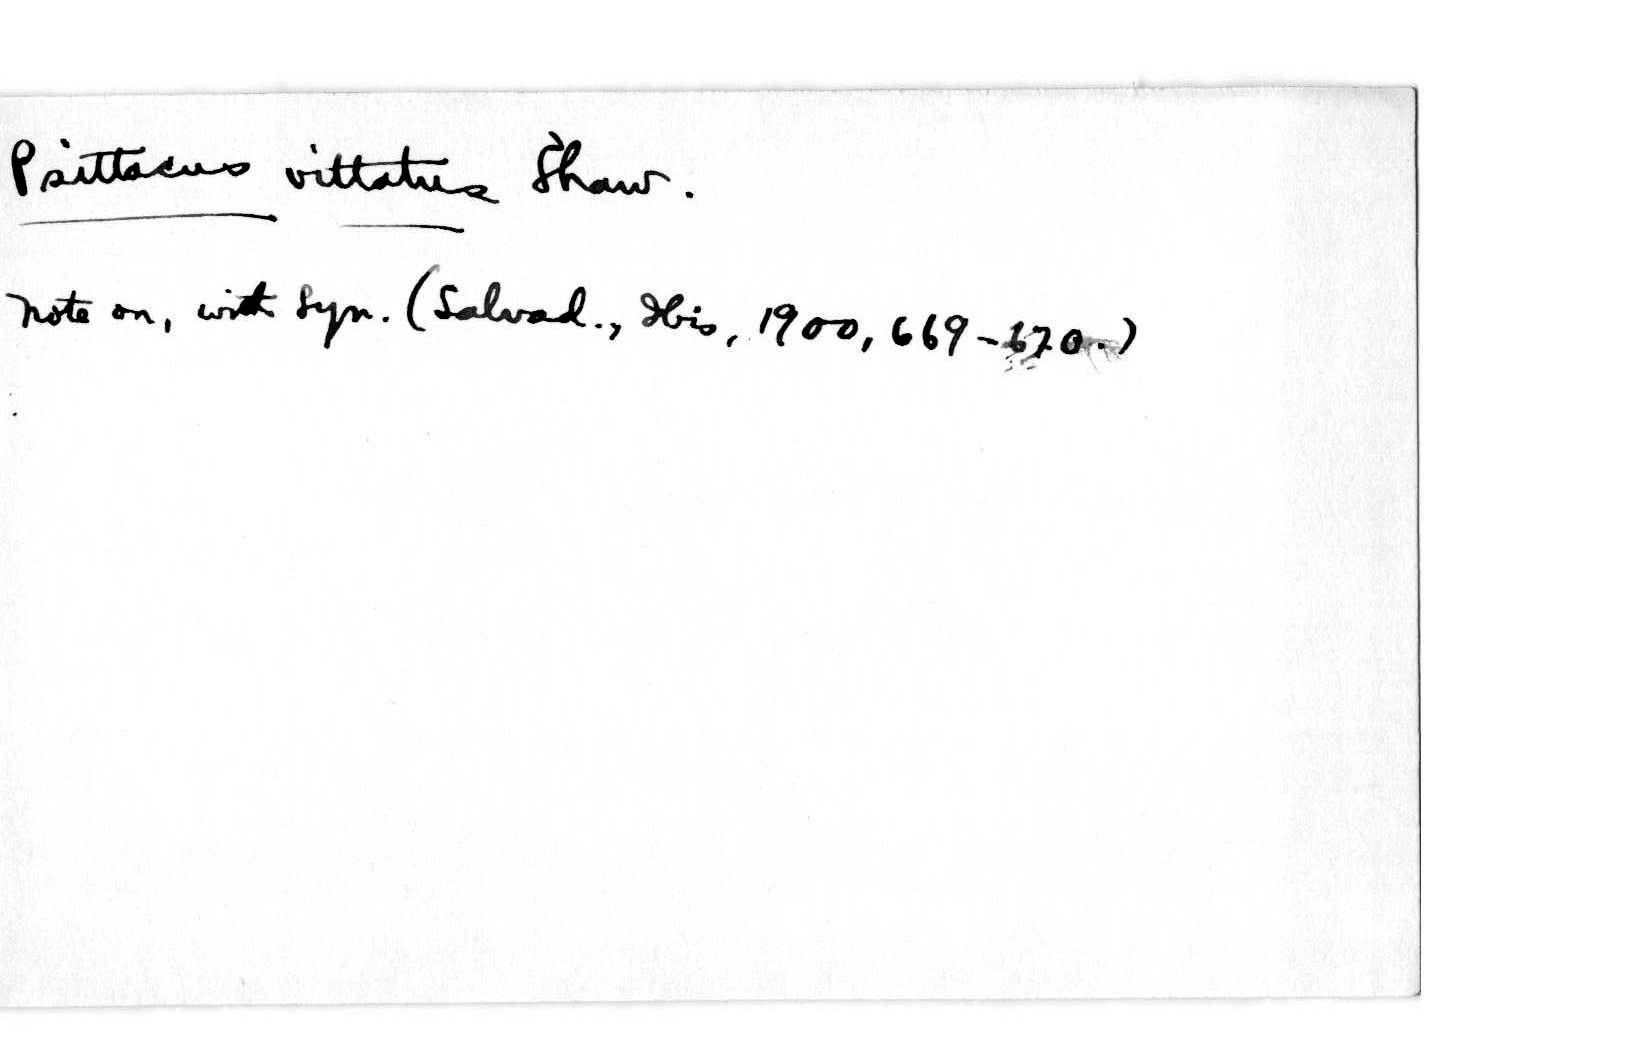 Psittacus vittatus Shaw.
Note on, with Syn. (Salvad., Ibis, 1900, 669-670.)